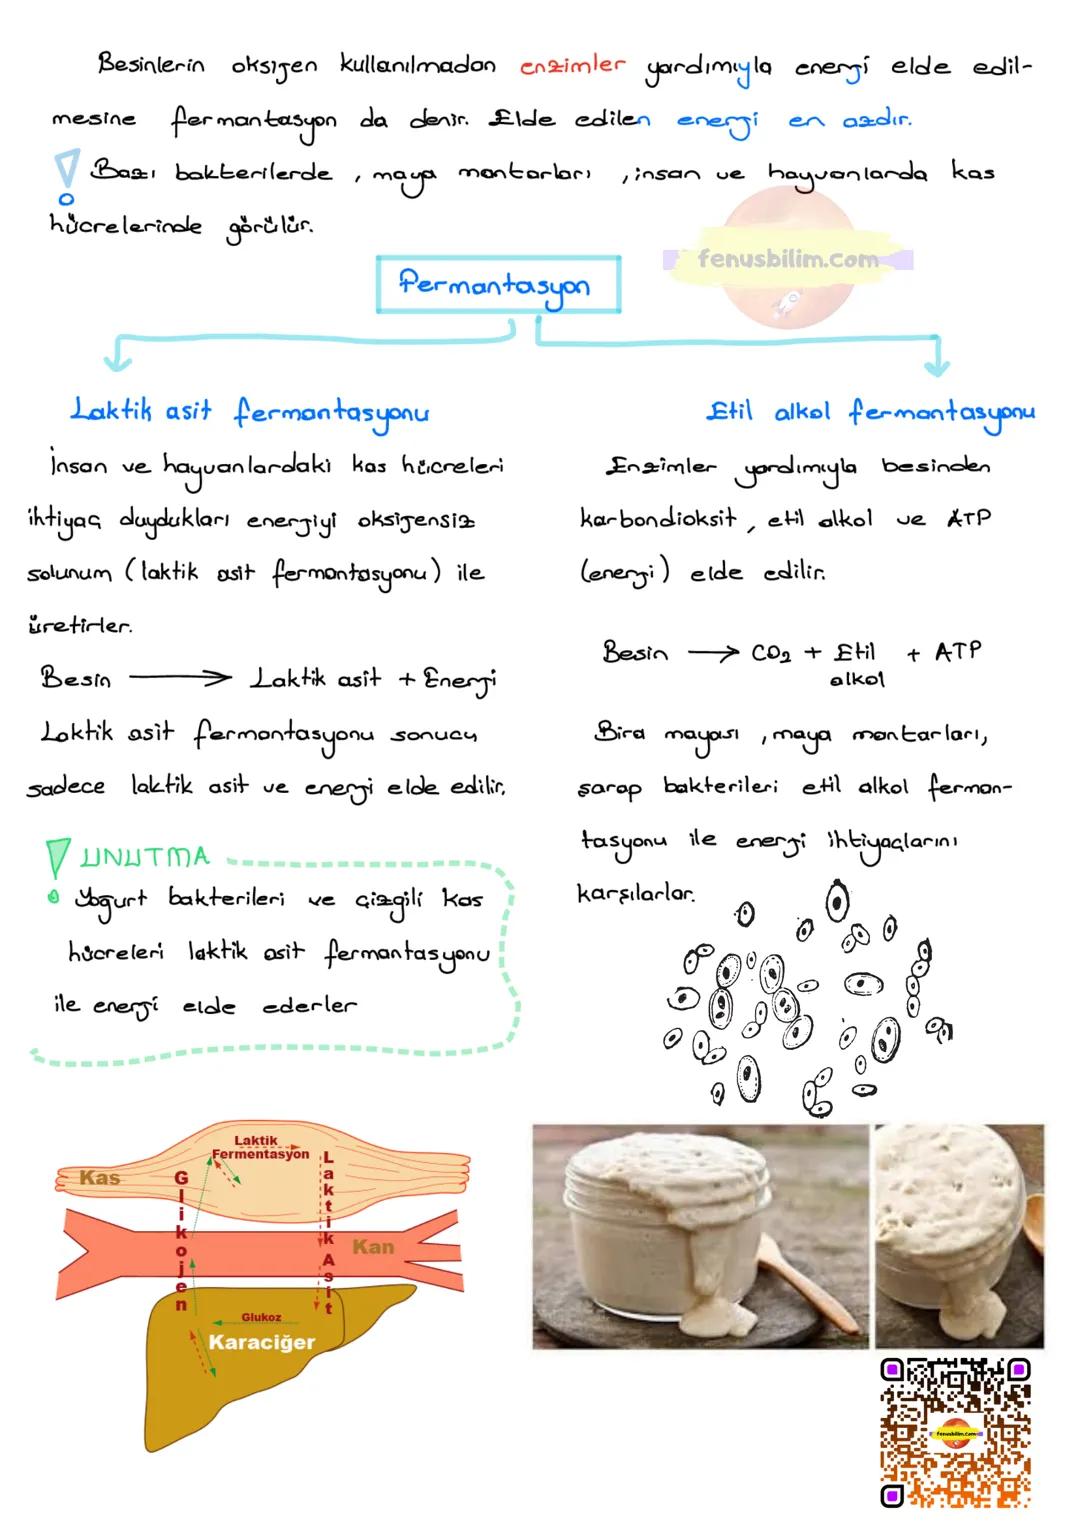 Besinlerin oksijen kullanılmadan enzimler yardımıyla enerji elde edil-
mesine fermantasyon da denir. Elde edilen enerji en azdır.
Bazı bakterilerde , maya mantarları , insan ve hayvanlarda kas
hücrelerinde görülür.
fenusbilim.com
Fermantasyon
Laktik asit fermantasyonu
İnsan ve hayvanlardaki kas hücreleri
ihtiyaç duydukları enerjiyi oksijensiz
solunum (laktik asit fermantasyonu) ile
üretirler.
Besin → Laktik asit + Enerji
Laktik asit fermantasyonu sonucu
sadece laktik asit ve enerji elde edilir.
! UNUTMA
Yogurt bakterileri ve çizgili kas
hücreleri laktik asit fermantasyonu
ile enerji elde ederler
Etil alkol fermantasyonu
Enzimler yardımıyla besinden
karbondioksit , etil alkol ve ATP
(enerji) elde edilir.
Besin → CO₂ + Etil + ATP
alkol
Bira mayası , maya mantarları,
şarap bakterileri etil alkol ferman-
tasyonu ile enerji ihtiyaçlarını
karşılarlar.
Laktik
Fermentasyon
Kas
Glikojen
Laktik Asit
Kan
Glukoz
Karaciğer
fenusbilim.com